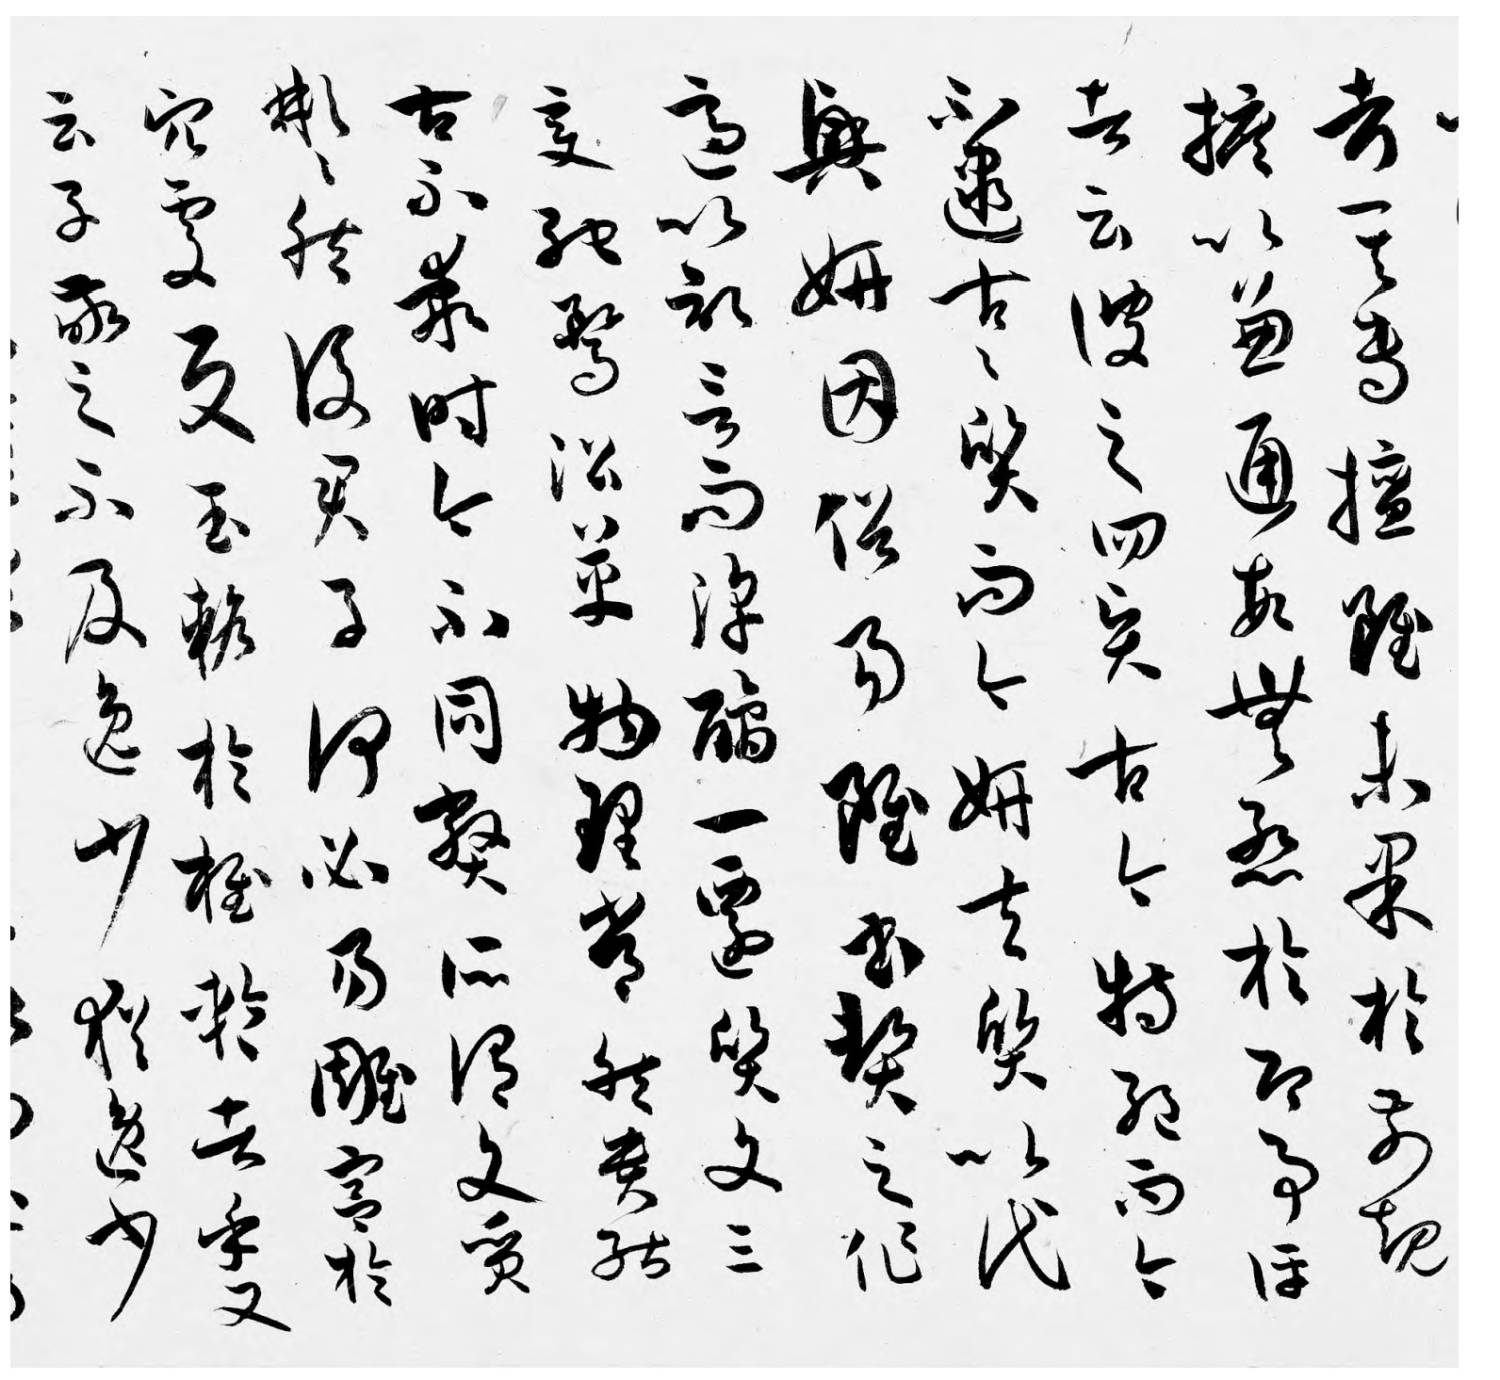 考其專擅雖未果於前規
摭以兼通故無慙於即事評
者云彼之四賢古今特絕而今
不逮古々質而今妍夫質以代
興妍因俗易雖書契之作
適以記言而淳醨一遷質文三
變馳騖沿革物理常然貴能
古不乖時今不同弊所謂文質
彬々然後君子何必易雕宮於
穴處反玉輅於椎輪者乎又
云子敬之不及逸少猶逸少